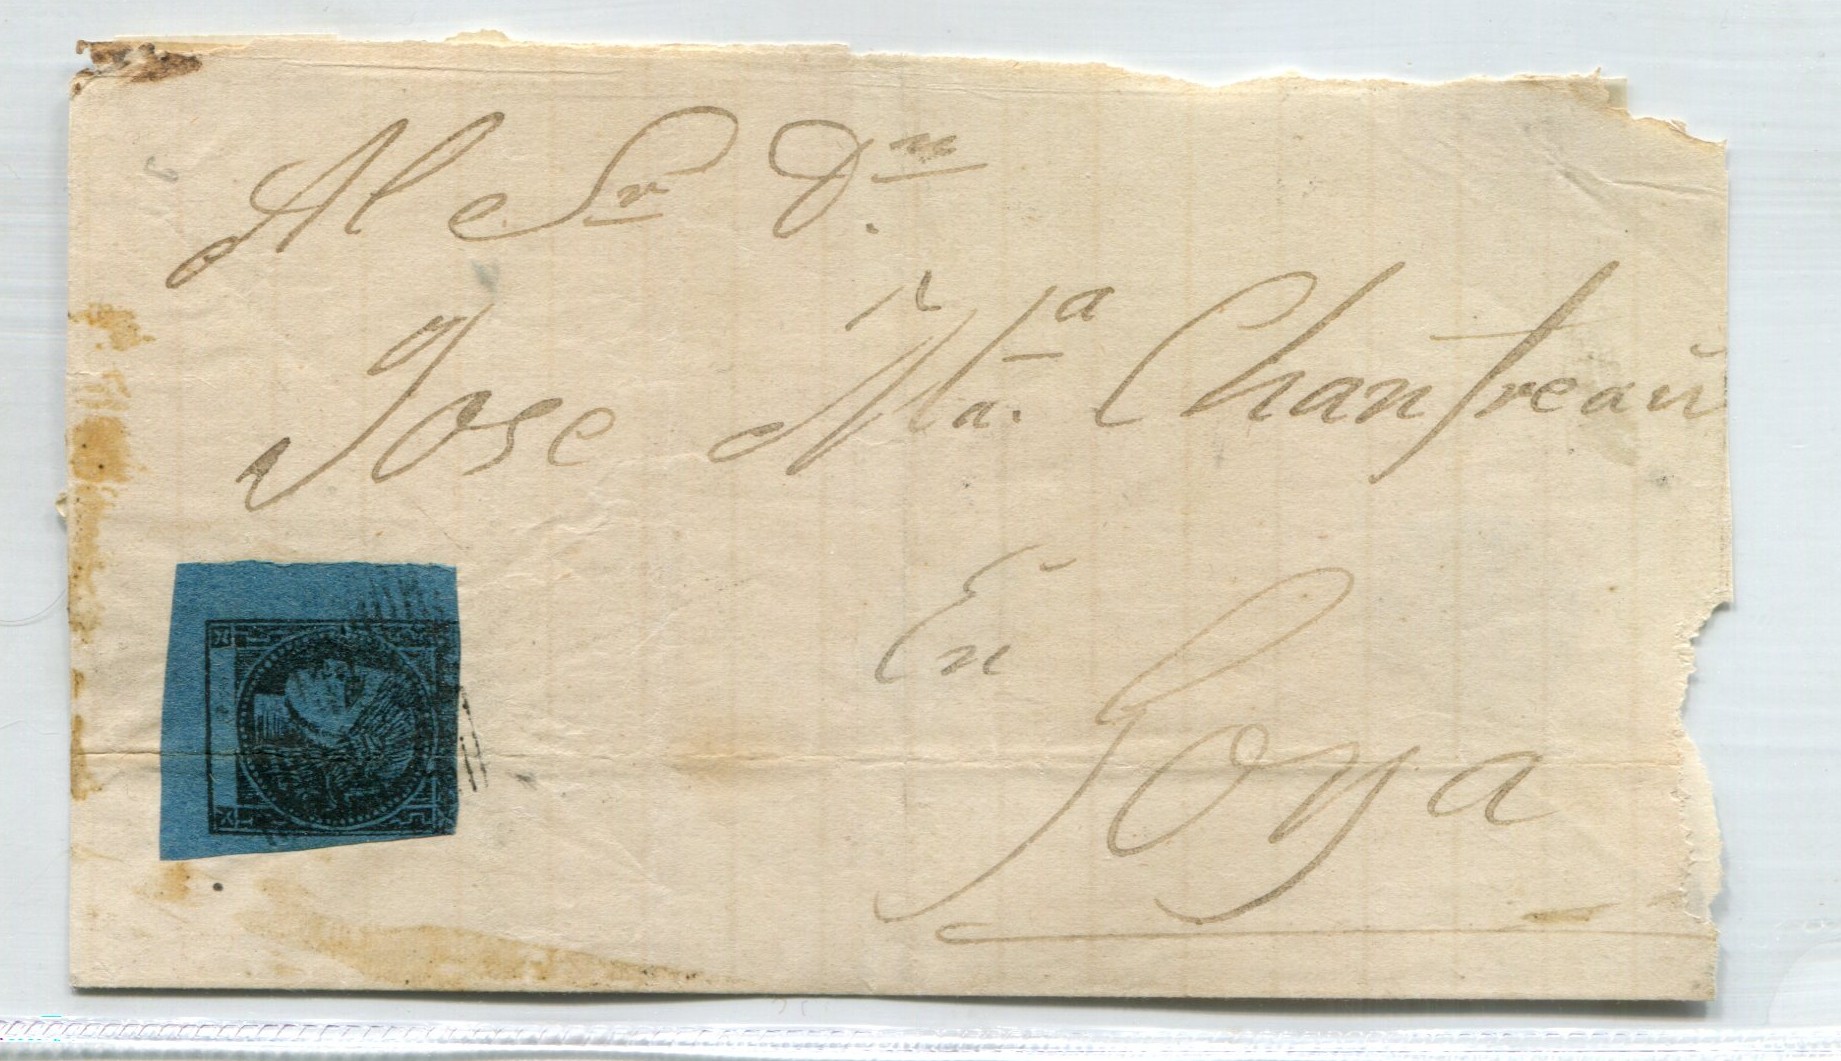 Al Sr Dn.
Jose Ma. Chanfreau
En
Goya